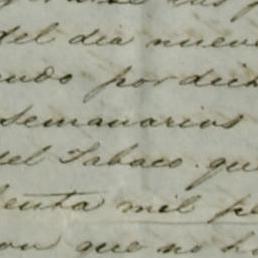 del dia nueve
por dich
semanarios
del Tabaco. que
enta mil pe
que no h